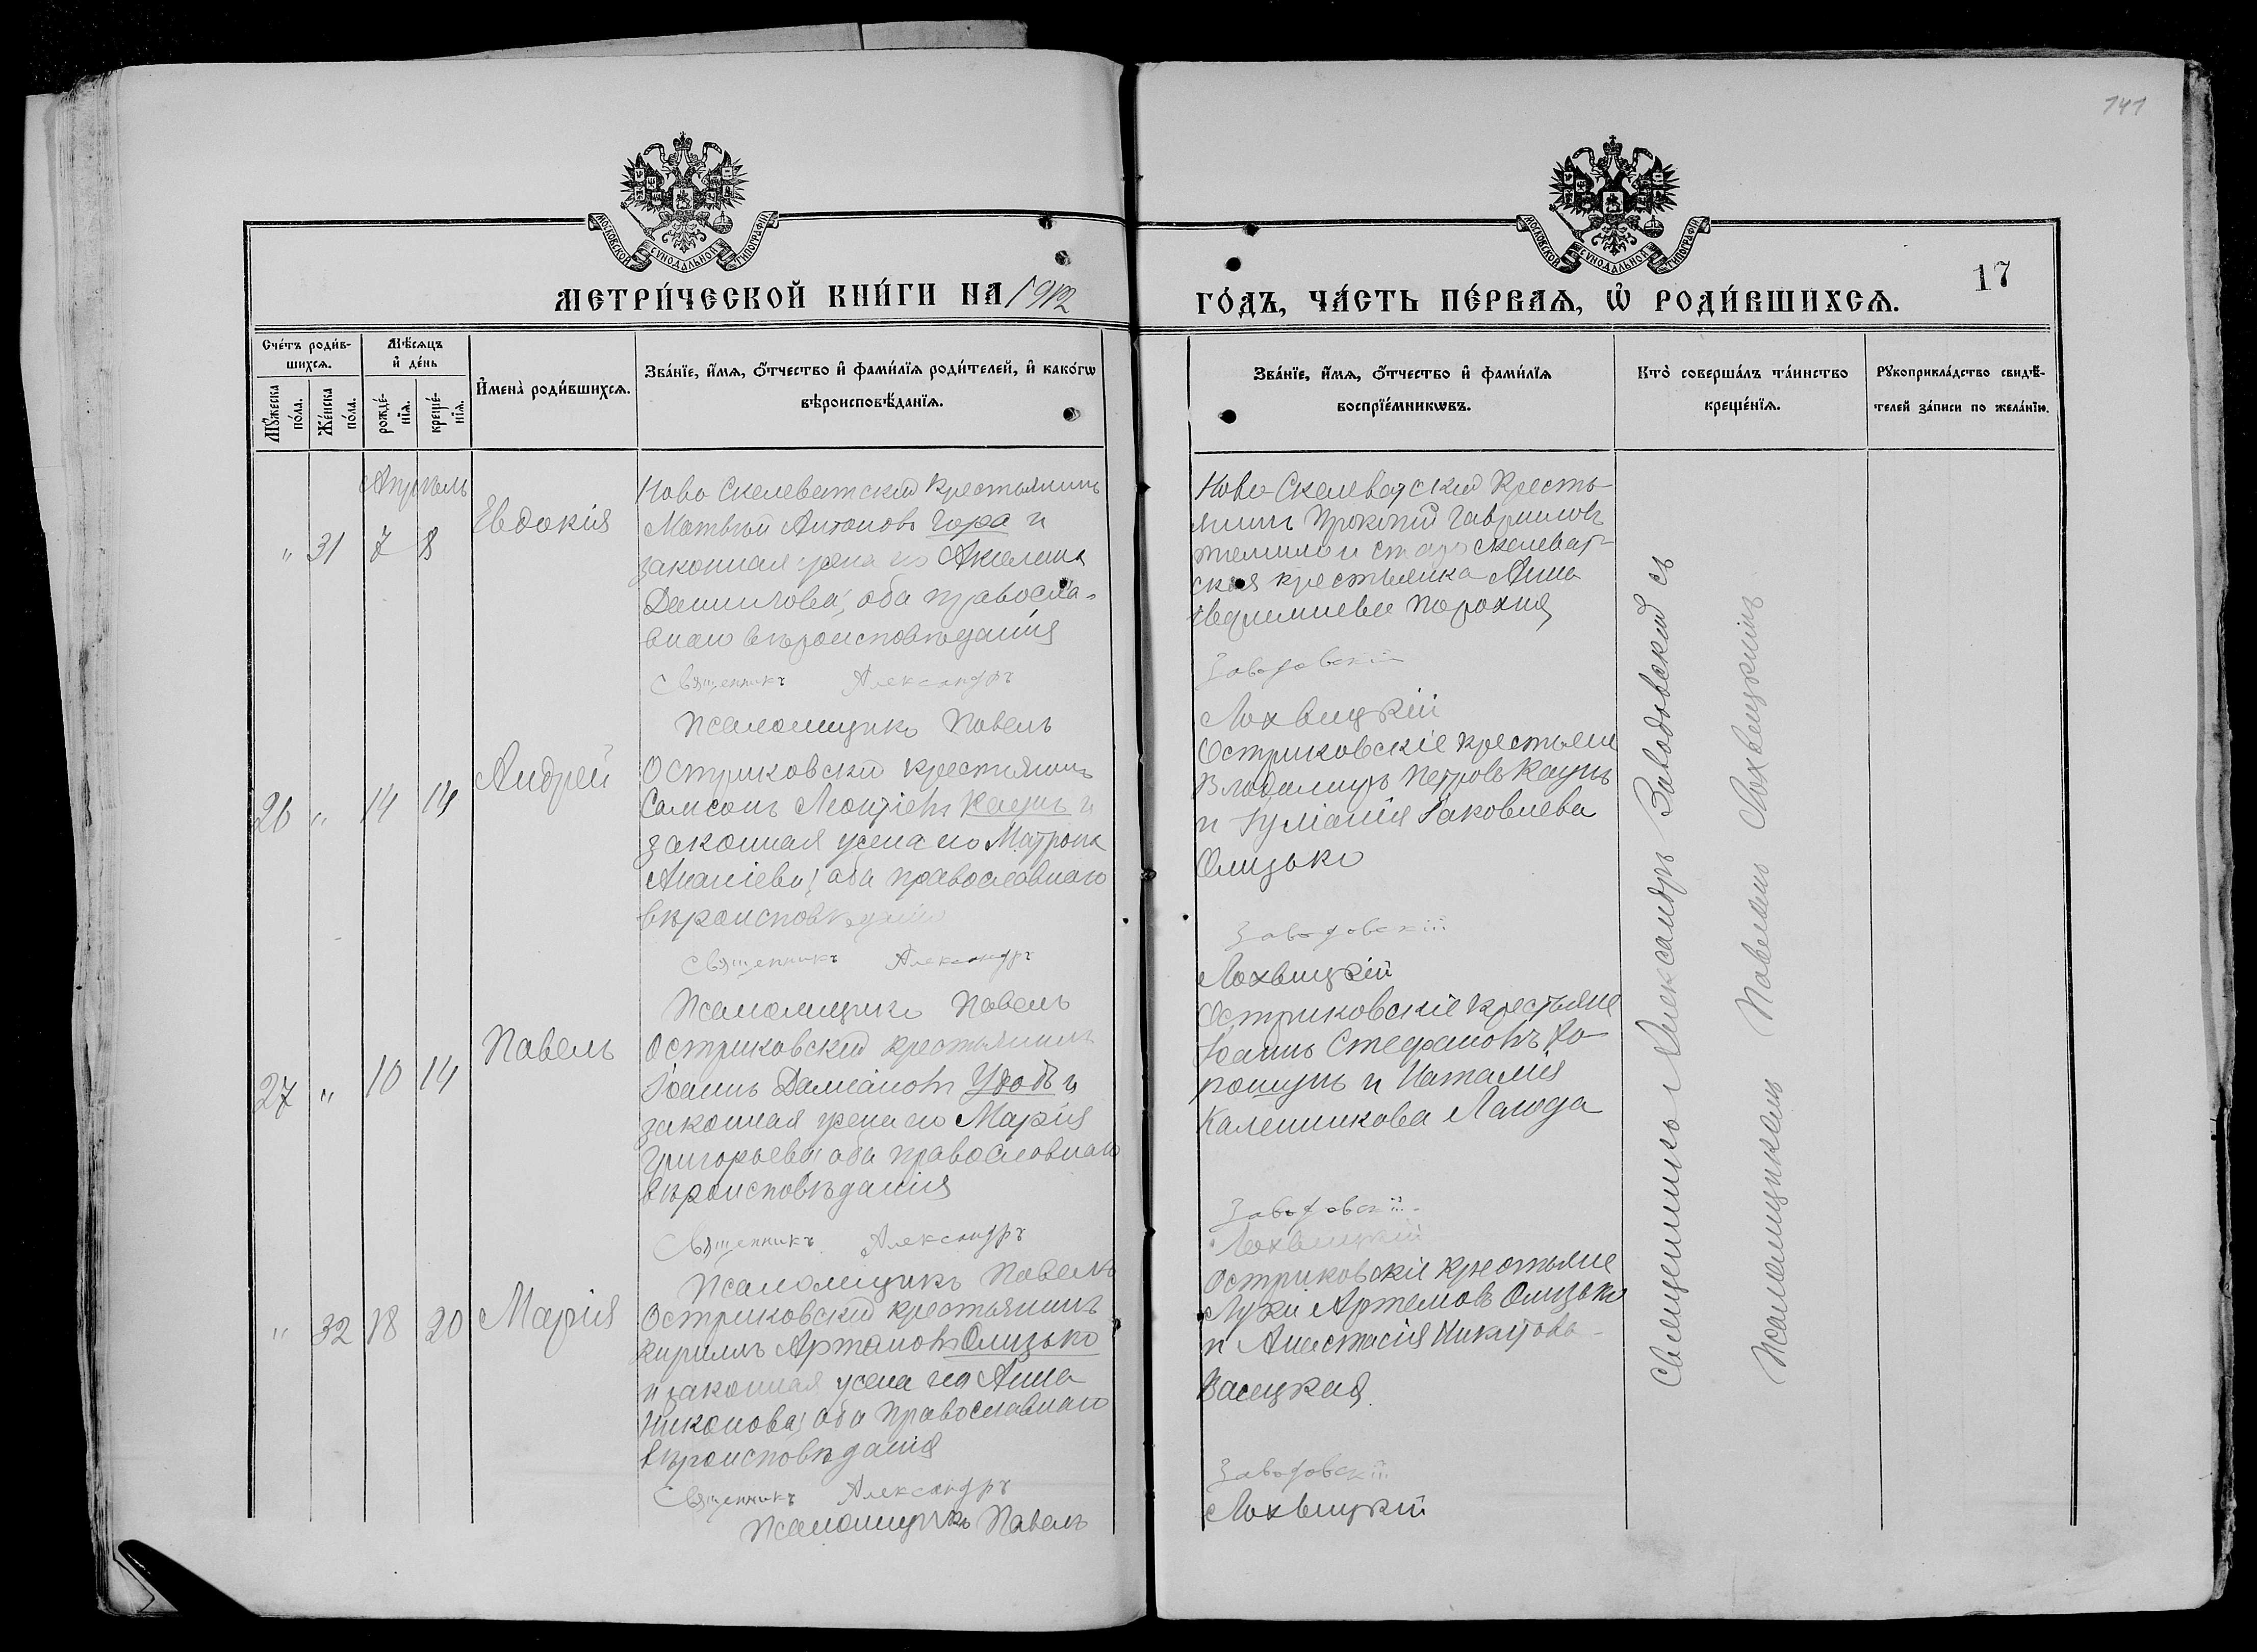 141
МОСКОВСКОЙ СѴНОДАЛЬНОЙ ТИПОГРАФІИ
МОСКОВСКОЙ СѴНОДАЛЬНОЙ ТИПОГРАФІИ
17
МЕТРИ́ЧЕСКОЙ КНИ́ГИ НА 1912
ГО́ДЪ, ЧА́СТЬ ПЕ́РВАѦ, Ѡ҆ РОДИ́ВШИХСѦ.
Сче́тъ роди́в-
шихсѧ.
Мꙋ́жеска по́ла.
Же́нска по́ла.
Мѣ́сѧцъ и҆ де́нь
рожде́-нїѧ.
креще́-нїѧ.
И҆мена̀ роди́вшихсѧ.
Зва́нїе, и҆́мѧ, ѻ҆́тчество и҆ фами́лїѧ роди́телей, и҆ како́гѡ
вѣроисповѣ́данїѧ.
Зва́нїе, и҆́мѧ, ѻ҆́тчество и҆ фами́лїѧ
воспрїе́мникѡвъ.
Кто̀ соверша́лъ та́инство
креще́нїѧ.
Рꙋкоприкла́дство свидѣ́-
телей за́писи по жела́нїю.
Апрѣль
" 31 7 8
Евдокія
Ново Скелеватскій крестьянинъ
Матвѣй Антоновъ Гора и
законная жена его Акилина
Даниилова, оба правосла-
внаго вѣроисповѣданія
Священникъ Александръ
Псаломщикъ Павелъ
Ново-Скелеватскій кресть-
янинъ Прокопій Гавриловъ
и старо скелеват-
ская крестьянка Анна
Порохня
Заводовскій
Лохвицкій
26 " 14 14
Андрей
Остриковскій крестьянинъ
Сампсонъ Леонтіевъ Каунъ и
законная жена его Матрона
Ананіева, оба православнаго
вѣроисповѣданія
Священникъ Александръ
Псаломщикъ Павелъ
Остриковскіе крестьяне
Владимиръ Петровъ Каунъ
и Іуліанія Іаковлева
Олизько
Заводовскій
Лохвицкій
27 " 10 14
Павелъ
Остриковскій крестьянинъ
Іоаннъ Даміановъ Удодъ и
законная жена его Марія
Григорьева оба православнаго
вѣроисповѣданія
Священникъ Александръ
Псаломщикъ Павелъ
Остриковскіе крестьяне
Іоаннъ Стефановъ Хо-
рошунъ и Наталія
Калинникова Лагода
Заводовскій
Лохвицкій
" 32 18 20
Марія
Остриковскій крестьянинъ
Кириллъ Артемовъ Олизько
и законная жена его Анна
Никонова, оба православнаго
вѣроисповѣданія
Священникъ Александръ
Псаломщикъ Павелъ
Остриковскіе крестьяне
Лука Артемовъ Олизько
и Анастасія Никитова
Васецкая
Заводовскій
Лохвицкій
Священникъ Александръ Заводовскій съ
Псаломщикомъ Павломъ Лохвицкимъ